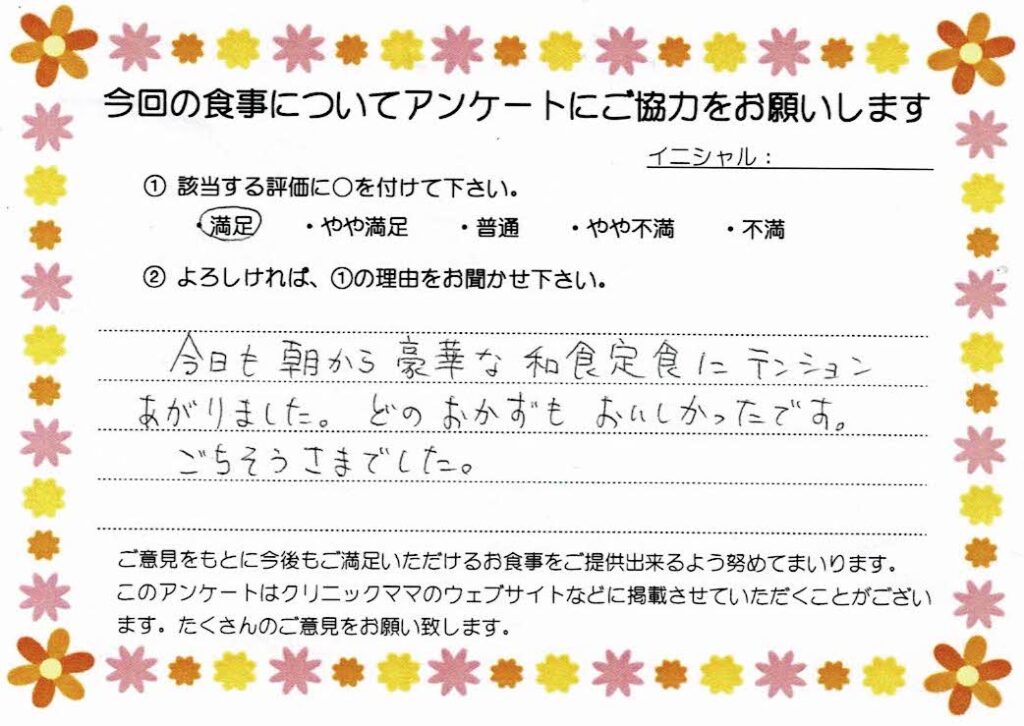 今回の食事についてアンケートにご協力をお願いします
イニシャル：
① 該当する評価に○を付けて下さい。
・満足 ・やや満足 ・普通 ・やや不満 ・不満
② よろしければ、①の理由をお聞かせ下さい。
今日も朝から豪華な和食定食にテンション
あがりました。どのおかずもおいしかったです。
ごちそうさまでした。
ご意見をもとに今後もご満足いただけるお食事をご提供出来るよう努めてまいります。
このアンケートはクリニックママのウェブサイトなどに掲載させていただくことがござい
ます。たくさんのご意見をお願い致します。